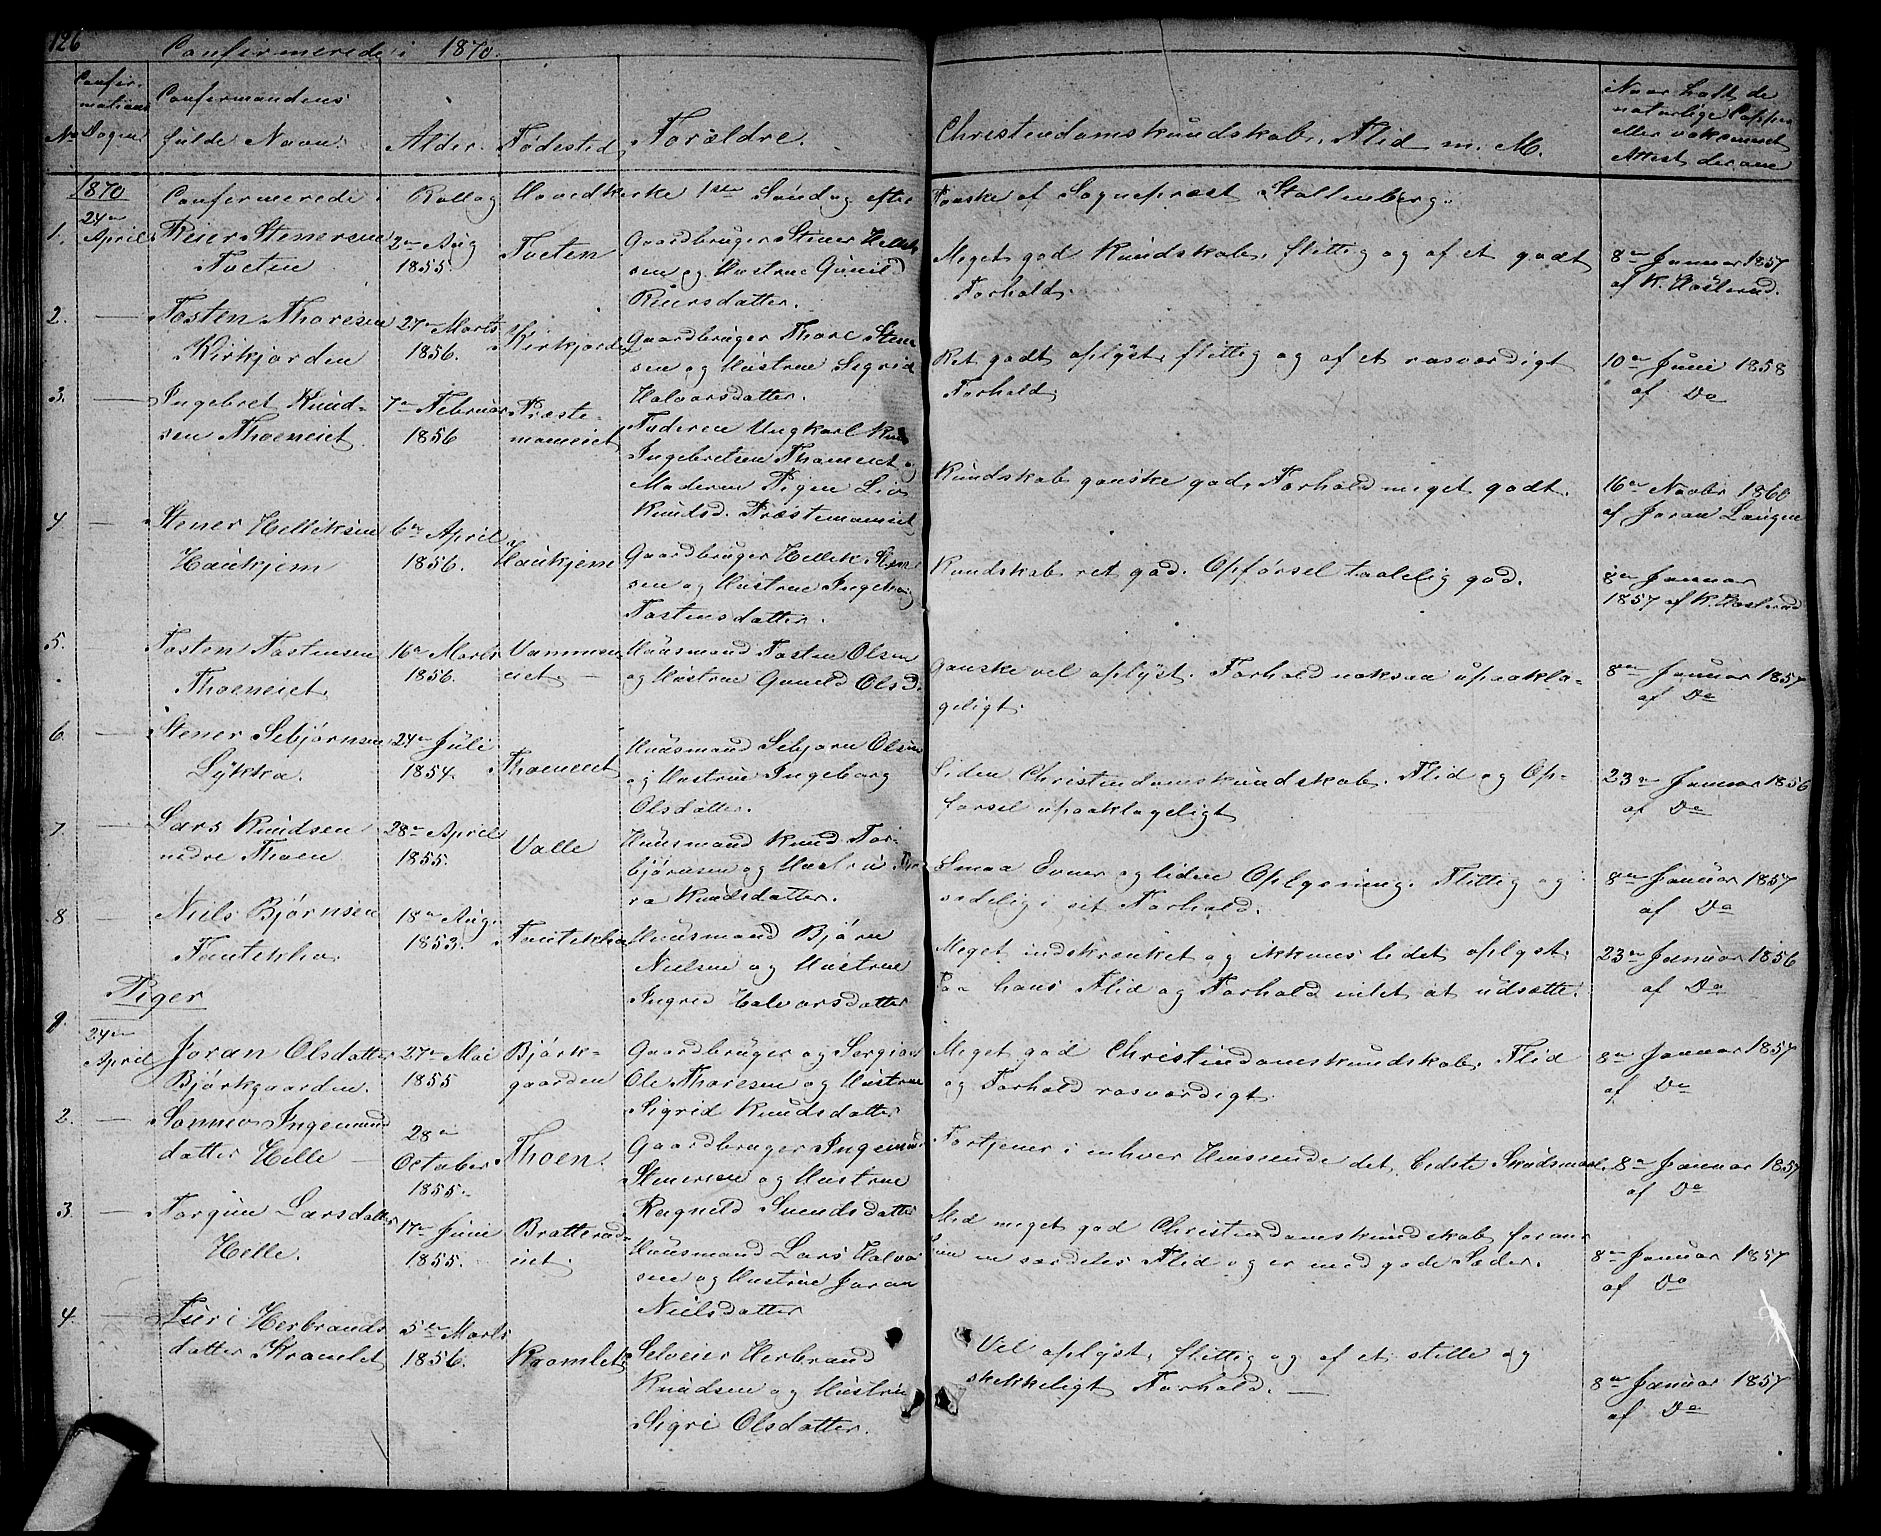 126
Confirmerede i 1870.
Confir-
mations
Dagen
No
Confirmandens
fulde Navn.
Alder.
Fødested
Forældre.
Christendomskundskab, Flid m. M.
Naar haft de
naturlige Copper
eller vakcineret
Attest derom
1870 Confirmerede i Rollag Hovedkirke 1ste Søndag efter Paaske af Sognepræst Stoltenberg.
1. 24de April
Reier Stenersen
Tveten
2den Aug
1855.
Tveten
Gaardbruger Stener Hellik
sen og Hustrue Gunild
Reiersdatter.
Meget god Kundskab, flittig og af et godt
Forhold.
8de Januar 1857
af K. Kosterud.
2. —
Tosten Thoresen
Kirkjorden
27de Marts
1856.
Kirkjorden
Gaardbruger Thore Sten
sen og Hustrue Sigrid
Halvorsdatter.
Ret godt oplyst, flittig og af et rosværdigt
Forhold.
10de Juni 1858
af Do
3. —
Ingebret Knud-
sen Thoeneiet.
7de Februar
1856
Præste-
moeneiet
Faderen Ungkarl Knud
Ingebretsen Thoeneiet og
Moderen Pigen Liv
Knudsd. Præstemoeneiet
Kundskab ganske god, Forhold meget godt.
16de Novbr 1860
af Joran Laugen
4 —
Stener Helleksen
Haukjem
6de April
1856.
Haukjem
Gaardbruger Hellek Sten
sen og Hustrue Ingeborg
Tostensdatter.
Kundskab ret god. Opførsel taalelig god.
8de Januar
1857 af K. Kosterud
5. —
Tosten Tostensen
Thoeneiet.
16de Marts
1856.
Vammen
eiet —
Huusmand Tosten Olsen
og Hustrue Gunild Olsd.
Ganske vel oplyst. Forhold noksaa upaakla-
geligt.
8de Januar 1857
af Do
6. —
Stener Sebjørnsen
Lykkja.
24de Juli
1854.
Thoeneiet
Huusmand Sebjørn Olsen
og Hustrue Ingeborg
Olsdatter.
Liden Christendomskundskab. Flid og Op-
førsel upaaklageligt
23de Januar 1856
af Do
7. —
Lars Knudsen
nedre Thoen
28de April
1855.
Valle
Huusmand Knud Tor-
bjørnsen og Hustrue
Knudsdatter.
Smaa Evner og liden Oplysning. Flittig og
sædelig i sit Forhold.
8de Januar 1857
af Do
8. —
Niels Bjørnsen
Fantekka.
18de Aug.
1853.
Fantekka
Huusmand Bjørn
Nielsen og Hustrue
Ingrid Halvorsdatter
Meget indskrænket og ikkuns lidet oplyst.
Paa hans Flid og Forhold intet at udsætte.
23de Januar 1856
af Do
Piger
1. 24de April
Joran Olsdatter
Bjørkgaarden.
27de Mai
1855
Bjørk-
gaarden
Gaardbruger og Sergian
Ole Thoresen og Hustrue
Sigrid Knudsdatter
Meget god Christendomskundskab, Flid
og Forhold rosværdigt.
8de Januar 1857
af Do
2. —
Sønnev Ingemund
datter Helle —
28de
October
1855.
Thoen.
Gaardbruger Ingemund
Stenersen og Hustrue
Ragnild Svendsdatter
Fortjener i enhver Henseende det bedste Skudsmaal.
8de Januar 1857
af Do
3. —
Torgun Larsdatter
Helle.
17de Juni
1855.
Bratterud-
eiet.
Huusmand Lars Halvor
sen og Hustrue Joran
Nielsdatter
Med meget god Christendomskundskab foran
hun en særdeles Flid og er med gode Sæder.
8de Januar 1857
af Do
4. —
Turi Herbrands
datter Kromlet
5te Marts
1856.
Kromlet
Selveier Herbrand
Knudsen og Hustrue
Sigri Olsdatter.
Vel oplyst, flittig og af et stille og
skikkeligt Forhold. —
8de Januar 1857
af Do